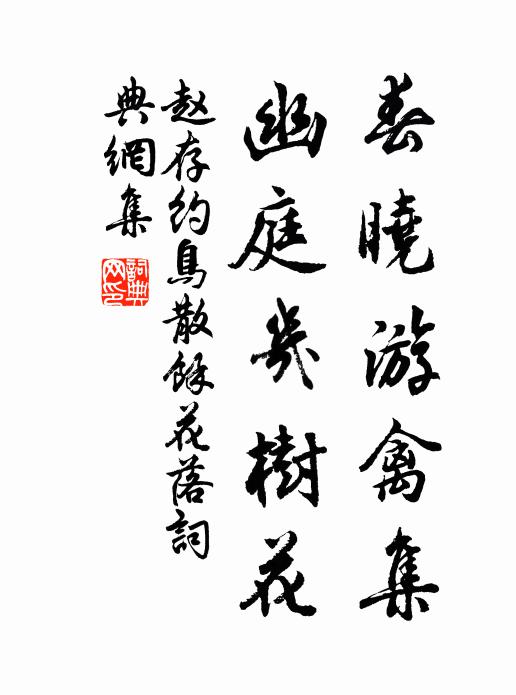 春曉游禽集
幽庭幾樹花
赵存約鳥散餘花落詞
典網集
詞典
网印